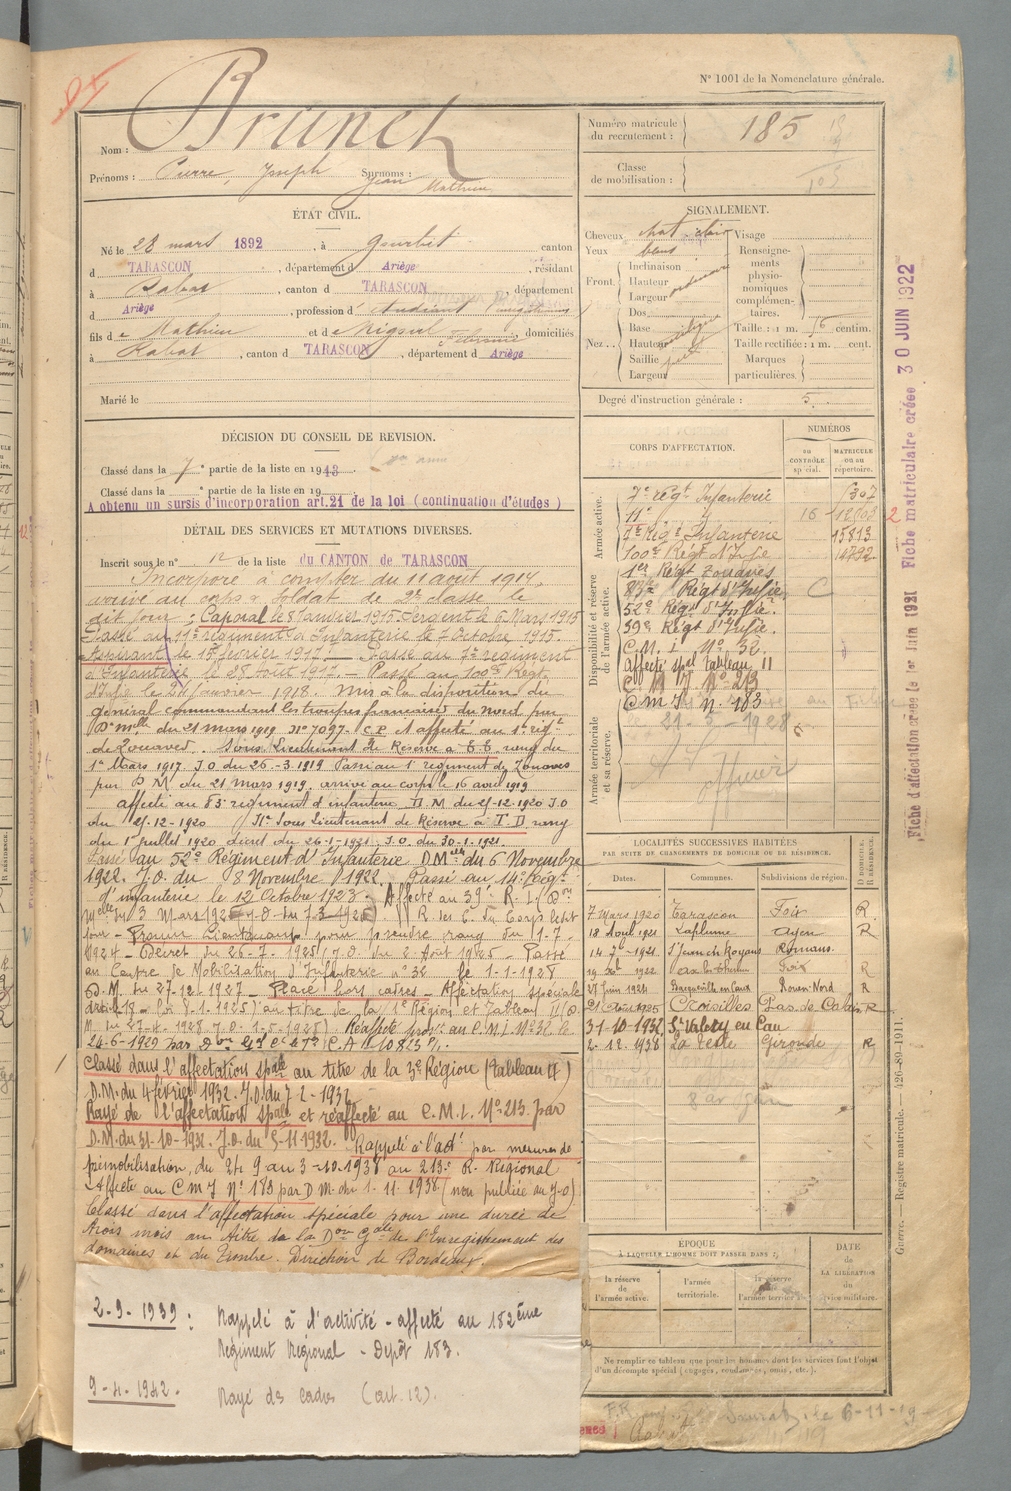 N° 1001 de la Nomenclature générale.
Nom : Brunet
Prénoms : Pierre, Joseph Surnoms : Jean Mathieu
Numéro matricule du recrutement : 185
Classe de mobilisation :
ÉTAT CIVIL.
Né le 28 mars 1892, à Gourbit canton
d TARASCON, département d Ariège, résidant
à Rabat, canton d TARASCON, département
d Ariège, profession d'étudiant
fils de Mathieu et de domiciliés
à Rabat, canton d TARASCON, département d Ariège
Marié le
SIGNALEMENT.
Cheveux chat. clair Visage
Yeux
Front. Inclinaison
Hauteur ordinaire
Largeur
Nez.. Dos
Base
Hauteur
Saillie
Largeur
Renseignements physionomiques complémentaires.
Taille : 1 m. centim.
Taille rectifiée : 1 m. cent.
Marques particulières.
Degré d'instruction générale : 5.
DÉCISION DU CONSEIL DE REVISION.
Classé dans la 7e partie de la liste en 1913.
Classé dans la e partie de la liste en 19
A obtenu un sursis d'incorporation art. 21 de la loi (continuation d'études)
DÉTAIL DES SERVICES ET MUTATIONS DIVERSES.
Inscrit sous le n° 12 de la liste du CANTON de TARASCON
Incorporé à compter du 11 août 1914,
arrivé au corps & Soldat de 2e classe le
dit jour ; Caporal le 8 Janvier 1915 Sergent le 6 Mars 1915
Passé au 11e régiment d'Infanterie le 7 Octobre 1915.
Aspirant le 15 février 1917. Passé au 7e régiment
d'Infanterie le 28 Août 1917. - Passé au 100e Régt
d'Infie le 21 Janvier 1918. Mis à la disposition du
général commandant les troupes françaises du Nord par
Don mlle du 21 mars 1919 N° 7097. C.P. A affecté au 1er régt
de Zouaves. Sous Lieutenant de Réserve à T.T. rang du
1er Mars 1917. J.O du 26-3.1919 Passé au 1er régiment de Zouaves
par D M. du 21 mars 1919. arrivé au corps le 16 avril 1919
affecté au 83e régiment d'infanterie D.M du 21-12.1920 J.O
du 21-12-1920 Sous Lieutenant de Réserve à T.D. rang
du 1er juillet 1920 décret du 26-1-1921. J.O. du 30-1.1921.
Passé au 52e Régiment d'Infanterie D.Melle du 6 Novembre
1922. J.O. du 8 Novembre 1922. Passé au 14e régt
d'infanterie le 12 Octobre 1923. Affecté au 39e R.I. (Don
Melle du 3 Mars 1925 J.O. du 7-3-1925). Corps le dit
jour - Promu Lieutenant pour prendre rang du 1.7.
1924 - Décret du 26-7-1925 (J.O. du 2 Août 1925 - Passé
au Centre de Mobilisation d'Infanterie n° 32 le 1-1-1928
D.M. du 27-12-1927 - Placé hors cadres - Affectation spéciale
article 18 - Loi 8-1.1925) au titre de la 1e Région et Tableau II (D.
M. du 27-4-1928 J.O. 1-5-1928) Réaffecté au C.M.I. N° 32 le
24-6-1929
Classé dans l'affectation spale au titre de la 3e Région (tableau II)
D.M. du 4 février 1932. J.O. du 7-2-1932
Rayé de l'affectation spale et réaffecté au C.M.I. N° 213 par
D.M. du 31-10-1932. J.O. du 5-11-1932. Rappelé à l'actté par mesure de
prémobilisation, du 24 9 au 3-10-1938 au 213e R. Régional
Affecté au CMJ N° 183 par D M. du 1-11.1938 (non publiée au J-O)
Classé dans l'affectation spéciale pour une durée de
trois mois au titre de la Don Gale de l'Enregistrement des
domaines et du Timbre. Direction de Bordeaux.
2-9-1939 : Rappelé à l'activité - affecté au 182ème
Régiment Régional - Dépôt 183.
9-4-1942. Rayé des cadres (art. 12).
CORPS D'AFFECTATION.
NUMÉROS
au CONTRÔLE spécial.
MATRICULE ou au répertoire.
Armée active.
7e régt Infanterie
11e " 16
7e Régt Infanterie 15813
100e Régt d'Infie
Disponibilité et réserve de l'armée active.
1er Régt Zouaves
83e Régt d'Infie C
52e Régt d'Infie.
39e Régt d'Infie.
C.M. I N° 32.
Affecté spal Tableau II
C M I N° 213
C M J N. 183
Armée territoriale et sa réserve,
21-5-1928
officier
LOCALITÉS SUCCESSIVES HABITÉES
PAR SUITE DE CHANGEMENTS DE DOMICILE OU DE RÉSIDENCE.
Dates. Communes. Subdivisions de région. D. DOMICILE. R. RÉSIDENCE.
7 Mars 1920 Tarascon Foix R.
18 Août 1921 Laplume Agen R
14-7-1921 St Jean en Royans Romans.
1922 Ax les Thermes Foix R
Juin 1924 Bacqueville en Caux Rouen-Nord R
21 Août 1925 Croisilles Pas-de-Calais R
31-10-1932 St Valery en Caux
2.12.1938 La Teste Gironde R
ÉPOQUE
À LAQUELLE L'HOMME DOIT PASSER DANS :
la réserve de l'armée active.
l'armée territoriale.
la réserve de l'armée territoriale
DATE de LA LIBÉRATION du service militaire.
Ne remplir ce tableau que pour les hommes dont les services font l'objet
d'un décompte spécial (engagés, condamnés, omis, etc.).
le 6-11-19
Fiche d'affectation créée le 1er Juin 1921 Fiche matriculaire créée 30 JUIN 1922
Guerre. — Registre matricule. — 426-89-1911.